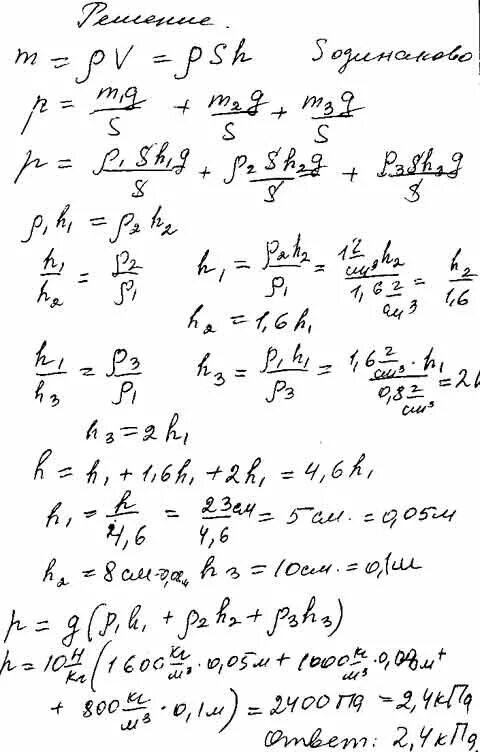 Решение.
m = ρV = ρSh S одинаково
p = m₁g/S + m₂g/S + m₃g/S
p = ρ₁Sh₁g/S + ρ₂Sh₂g/S + ρ₃Sh₂g/S
ρ₁h₁ = ρ₂h₂
h₁/h₂ = ρ₂/ρ₁ h₁ = ρ₂h₂/ρ₁ = 1 г/см³ h₂ / 1,6 г/см³ = h₂/1,6
h₂ = 1,6h₁
h₁/h₃ = ρ₃/ρ₁ h₃ = ρ₁h₁/ρ₃ = 1,6 г/см³ · h₁ / 0,8 г/см³ = 2
h₃ = 2h₁
h = h₁ + 1,6h₁ + 2h₁ = 4,6h₁
h₁ = h/4,6 = 23 см/4,6 = 5 см. = 0,05 м
h₂ = 8 см h₃ = 10 см. = 0,1 м
p = g(ρ₁h₁ + ρ₂h₂ + ρ₃h₃)
p = 10 Н/кг (1600 кг/м³ · 0,05 м + 1000 кг/м³ · 0,08 м +
+ 800 кг/м³ · 0,1 м) = 2400 Па = 2,4 кПа
Ответ: 2,4 кПа